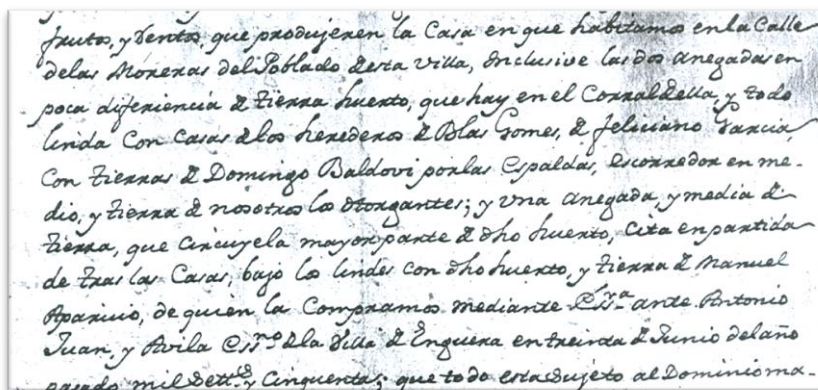 frutos, y Rentas, que produjeren la Casa en que habitamos en la Calle
delas Moreras del Poblado desta Villa, Inclusive las dos anegadas en
poca diferiencia de tierra huerto, que hay en el Corral della, y todo
linda Con Casas de los herederos de Blas Gomes, de feliciano Garcia,
Con tierras de Domingo Baldovi por las Espaldas, escorredor en me-
dio, y tierra de nosotros los otorgantes; y Vna anegada, y media de
tierra, que Circuye la mayor parte de dho huerto, Cita en partida
de tras las Casas, bajo los lindes con dho huerto, y tierra de Manuel
Aparicio, de quien la Compramos mediante Essra. ante Antonio
Juan, y Avila Essno. de la Villa de Enguera en treinta de Junio del año
pasado mil Setts. y Cinquenta; que todo esta Sujeto al Dominio ma-